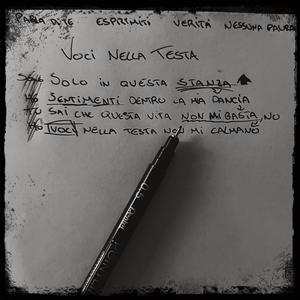 PARLA DI TE ESPRIMITI VERITÀ NESSUNA PAURA
VOCI NELLA TESTA
SOLO IN QUESTA STANZA
HO SENTIMENTI DENTRO LA MIA PANCIA
TU SAI CHE QUESTA VITA NON MI BASTA, NO
HO VOCI NELLA TESTA NON MI CALMANO
0.5